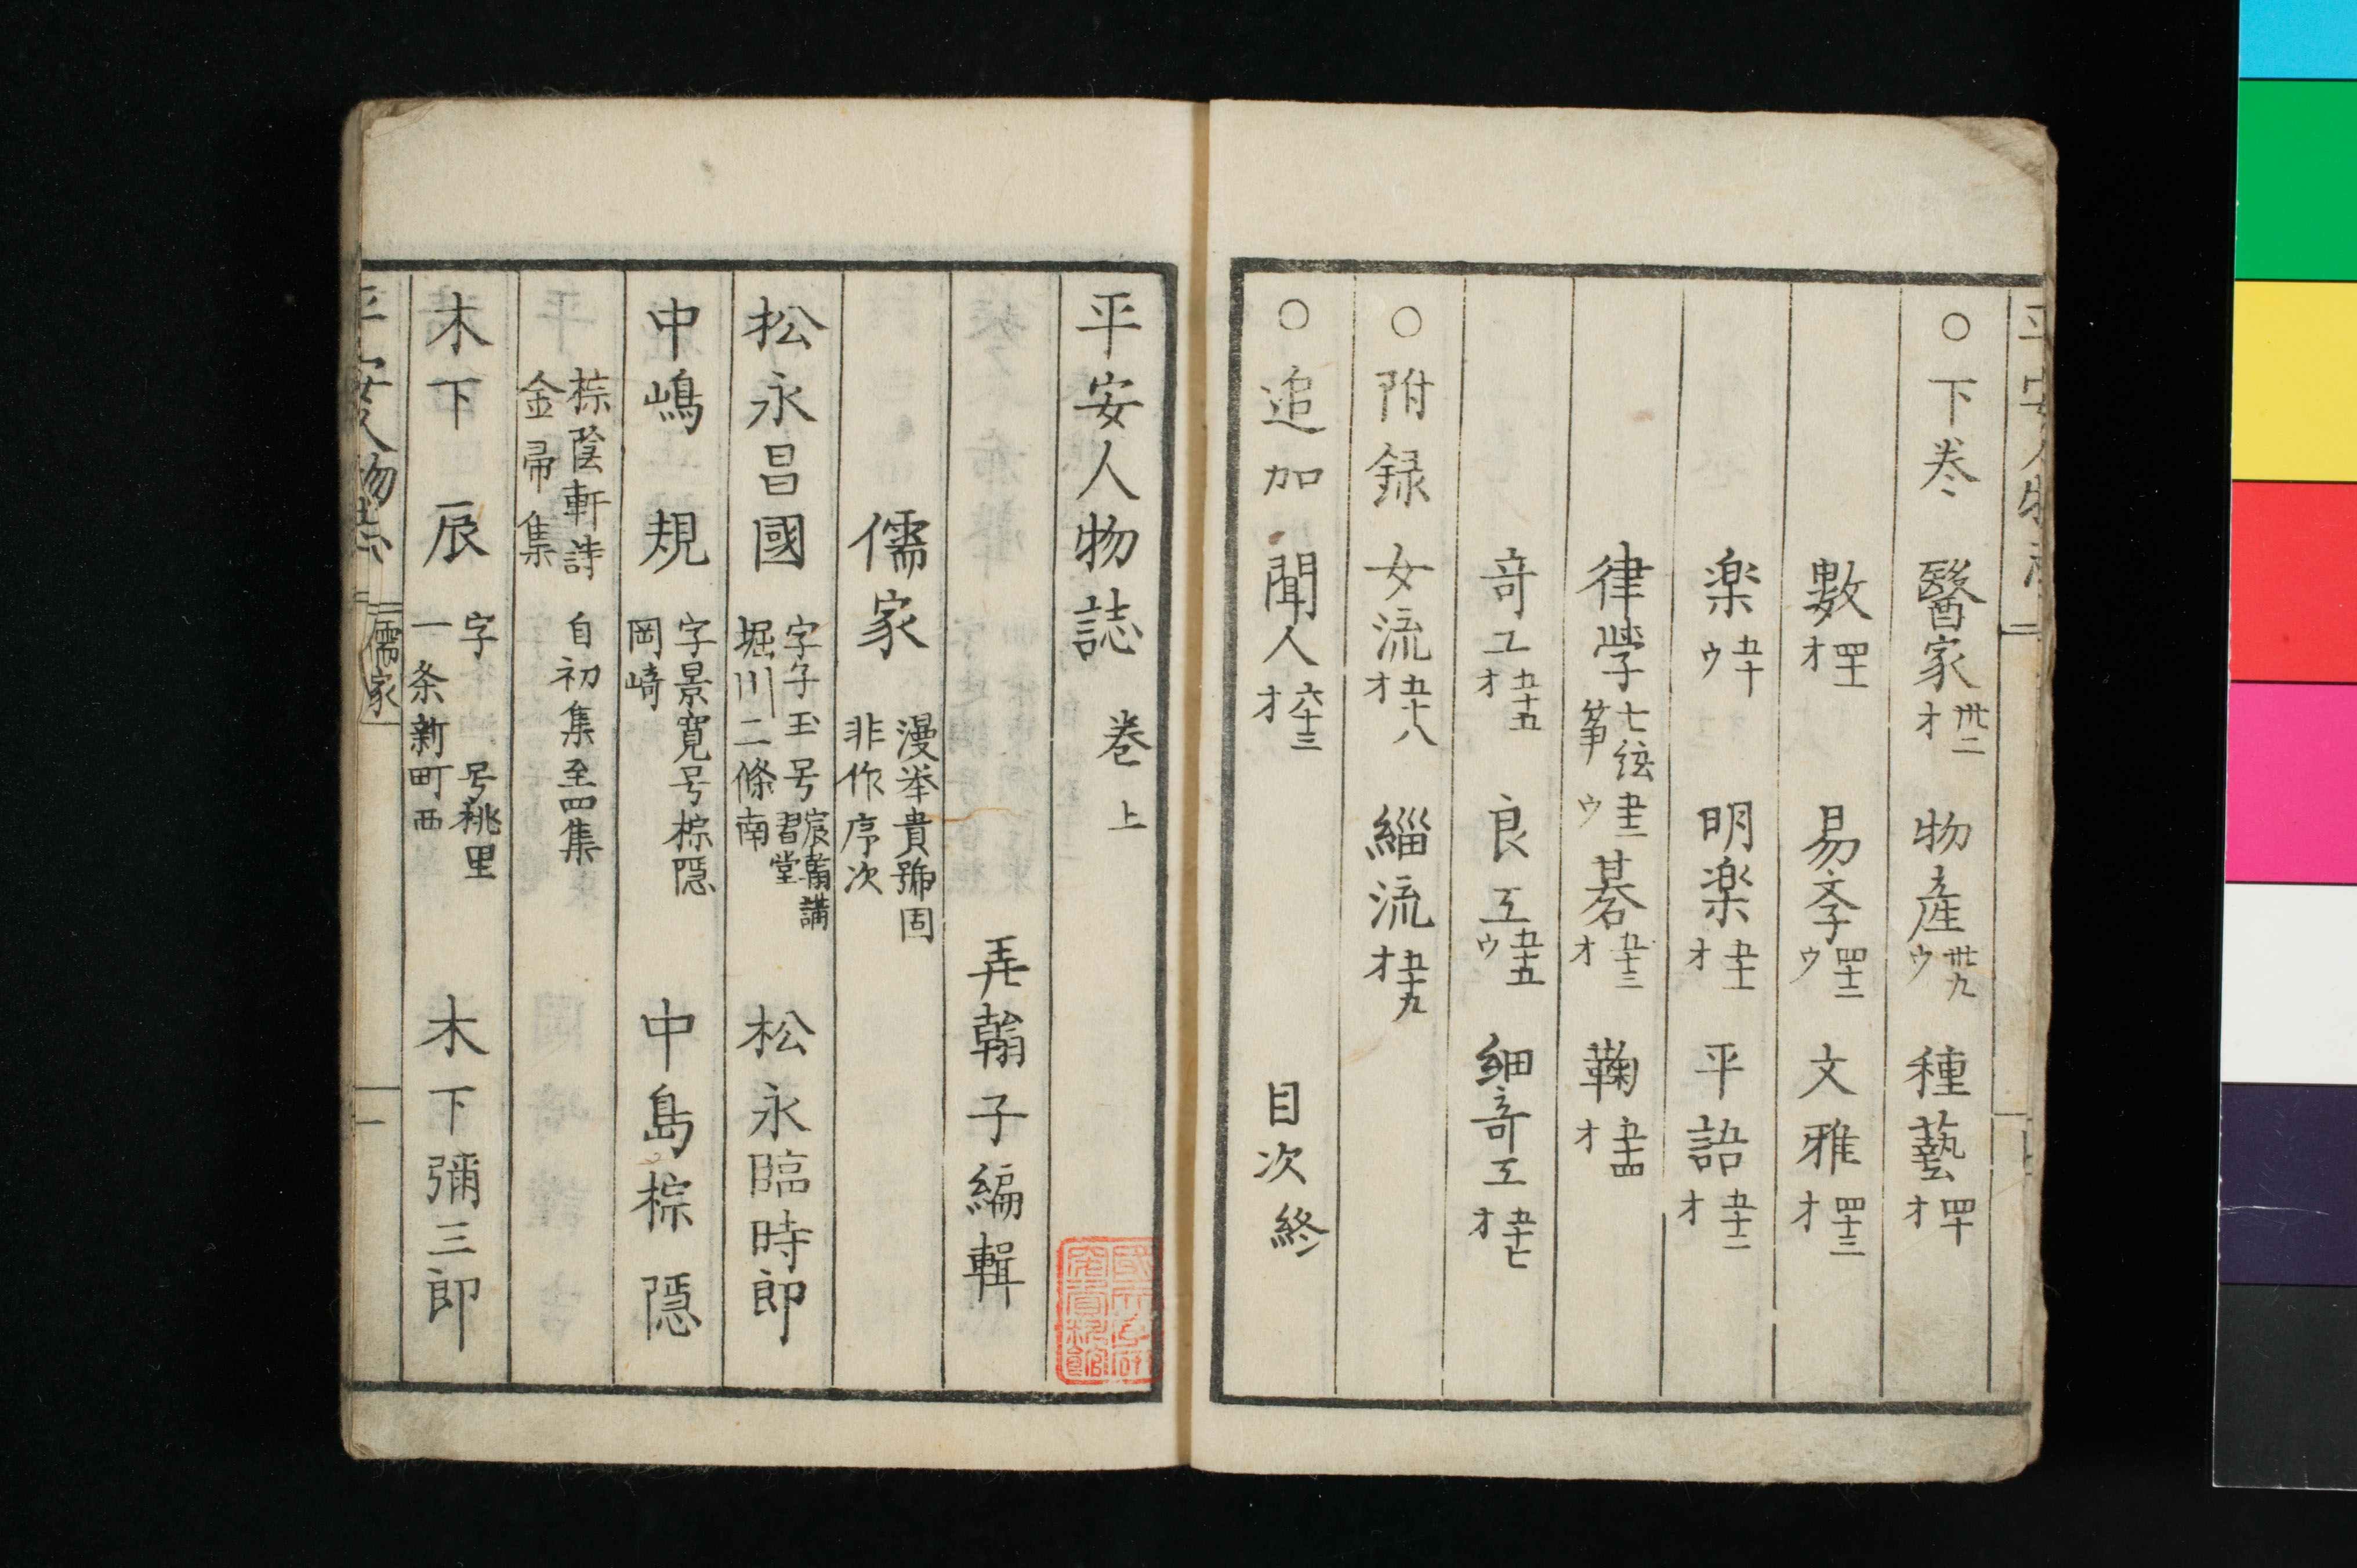 ○下巻 醫家 卅二オ 物産 卅九ウ 種藝 四十オ
數 四十一オ 易斈 四十二ウ 文雅 四十三オ
楽 五十ウ 明楽 五十一オ 平語 五十二オ
律學 七弦筝 五十二ウ 碁 五十三オ 鞠 五十四オ
竒工 五十五オ 良工 五十五ウ 細竒工 五十七オ
○附録 女流 五十八オ 緇流 五十九オ
○追加 聞人 六十三オ 目次終
平安人物誌 巻上
弄翰子編輯
儒家 漫举貴號固
非作序次
松永昌國 字子玉号宸翰講
習堂
堀川二條南 松永臨時郎
中嶋規 字景寛号棕隠
岡崎 中島棕隠
棕陰軒詩
金帚集 自初集至四集
木下辰 字 号桃里
一条新町西 木下彌三郎
平安人物誌 儒家 一